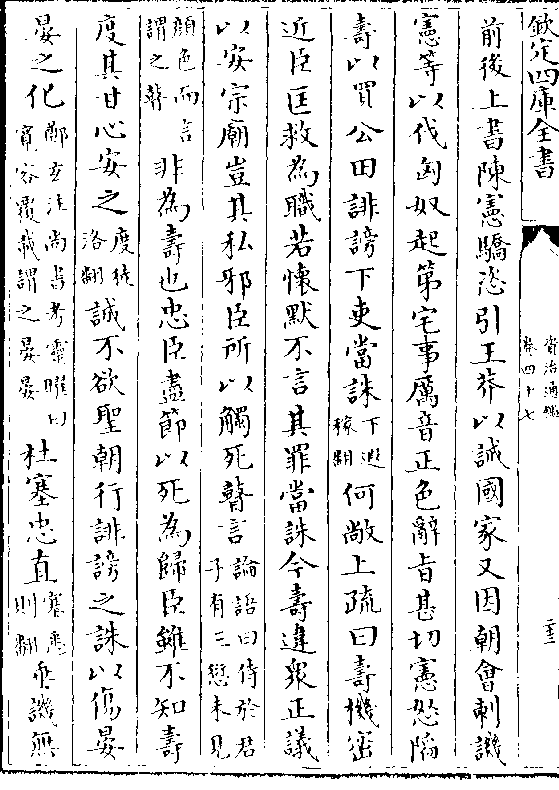 欽定四庫全書
資治通鑑
卷四十七
二十三
前後上書陳憲驕恣引王莽以誡國家又因朝會刺譏
憲等以伐匈奴起第宅事厲音正色辭旨甚切憲怒陷
壽以買公田誹謗下吏當誅下遐稼翻何敞上疏曰壽機密
近臣匡救為職若懷默不言其罪當誅今壽違衆正議
以安宗廟豈其私邪臣所以觸死瞽言論語曰侍於君子有三愆未見
顔色而言謂之瞽非為壽也忠臣盡節以死為歸臣雖不知壽
度其甘心安之度徒洛翻誠不欲聖朝行誹謗之誅以傷晏
晏之化鄭玄注尚書考靈曜曰寛容覆載謂之晏晏杜塞忠直塞悉則翻垂譏無